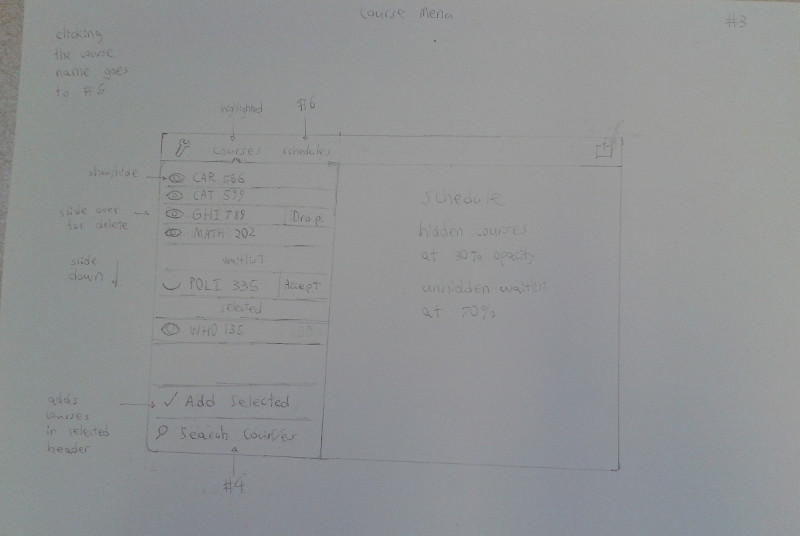 Course Menu
#3
clicking
the course
name goes
to #5
highlighted
#6
courses
schedules
show/hide
CAR 566
CAT 599
slide over
for delete
GHI 789
Drop
MATH 202
waitlist
slide
down
POLI 335
Accept
selected
WHO 135
adds
courses
in selected
header
Add Selected
Search Courses
#4
schedule
hidden courses
at 30% opacity
unhidden waitlist
at 70%